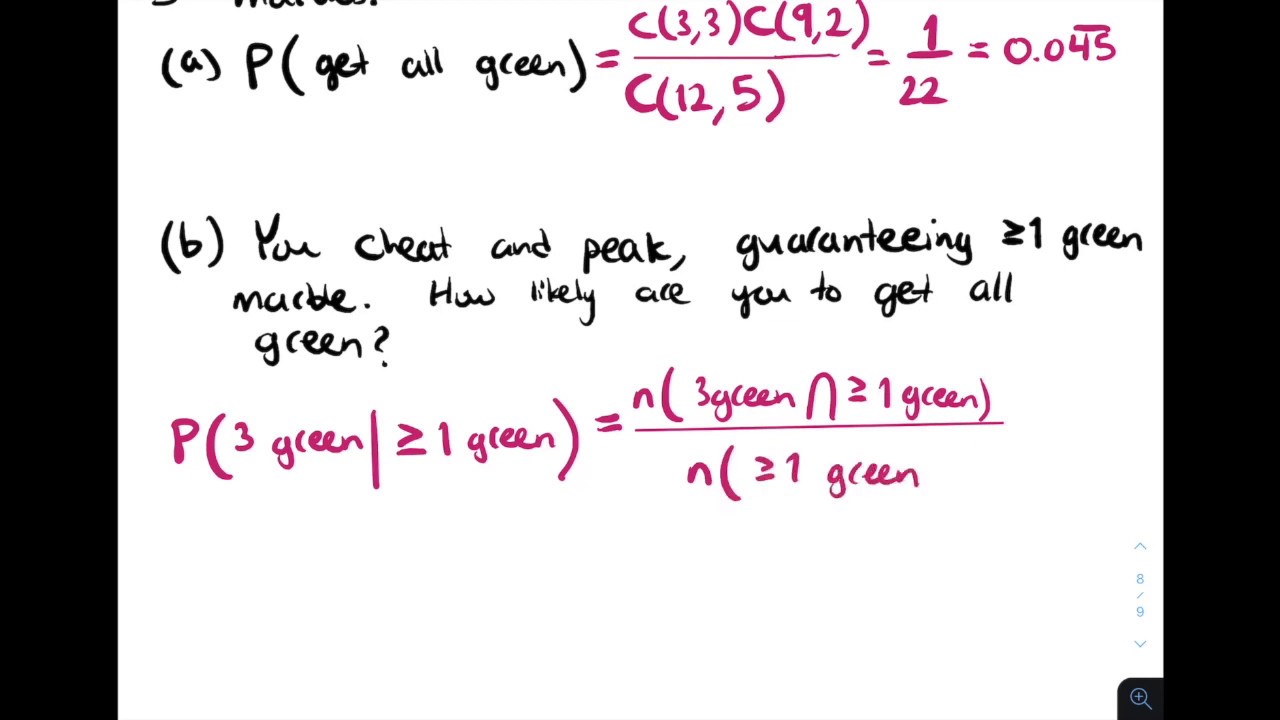 (a) P( get all green) = C(3,3)C(9,2) / C(12,5) = 1/22 = 0.04̅5̅
(b) You cheat and peak, guaranteeing ≥1 green
marble. How likely are you to get all
green?
P(3 green | ≥1 green) = n( 3green ∩ ≥1 green) / n( ≥1 green
8
/
9